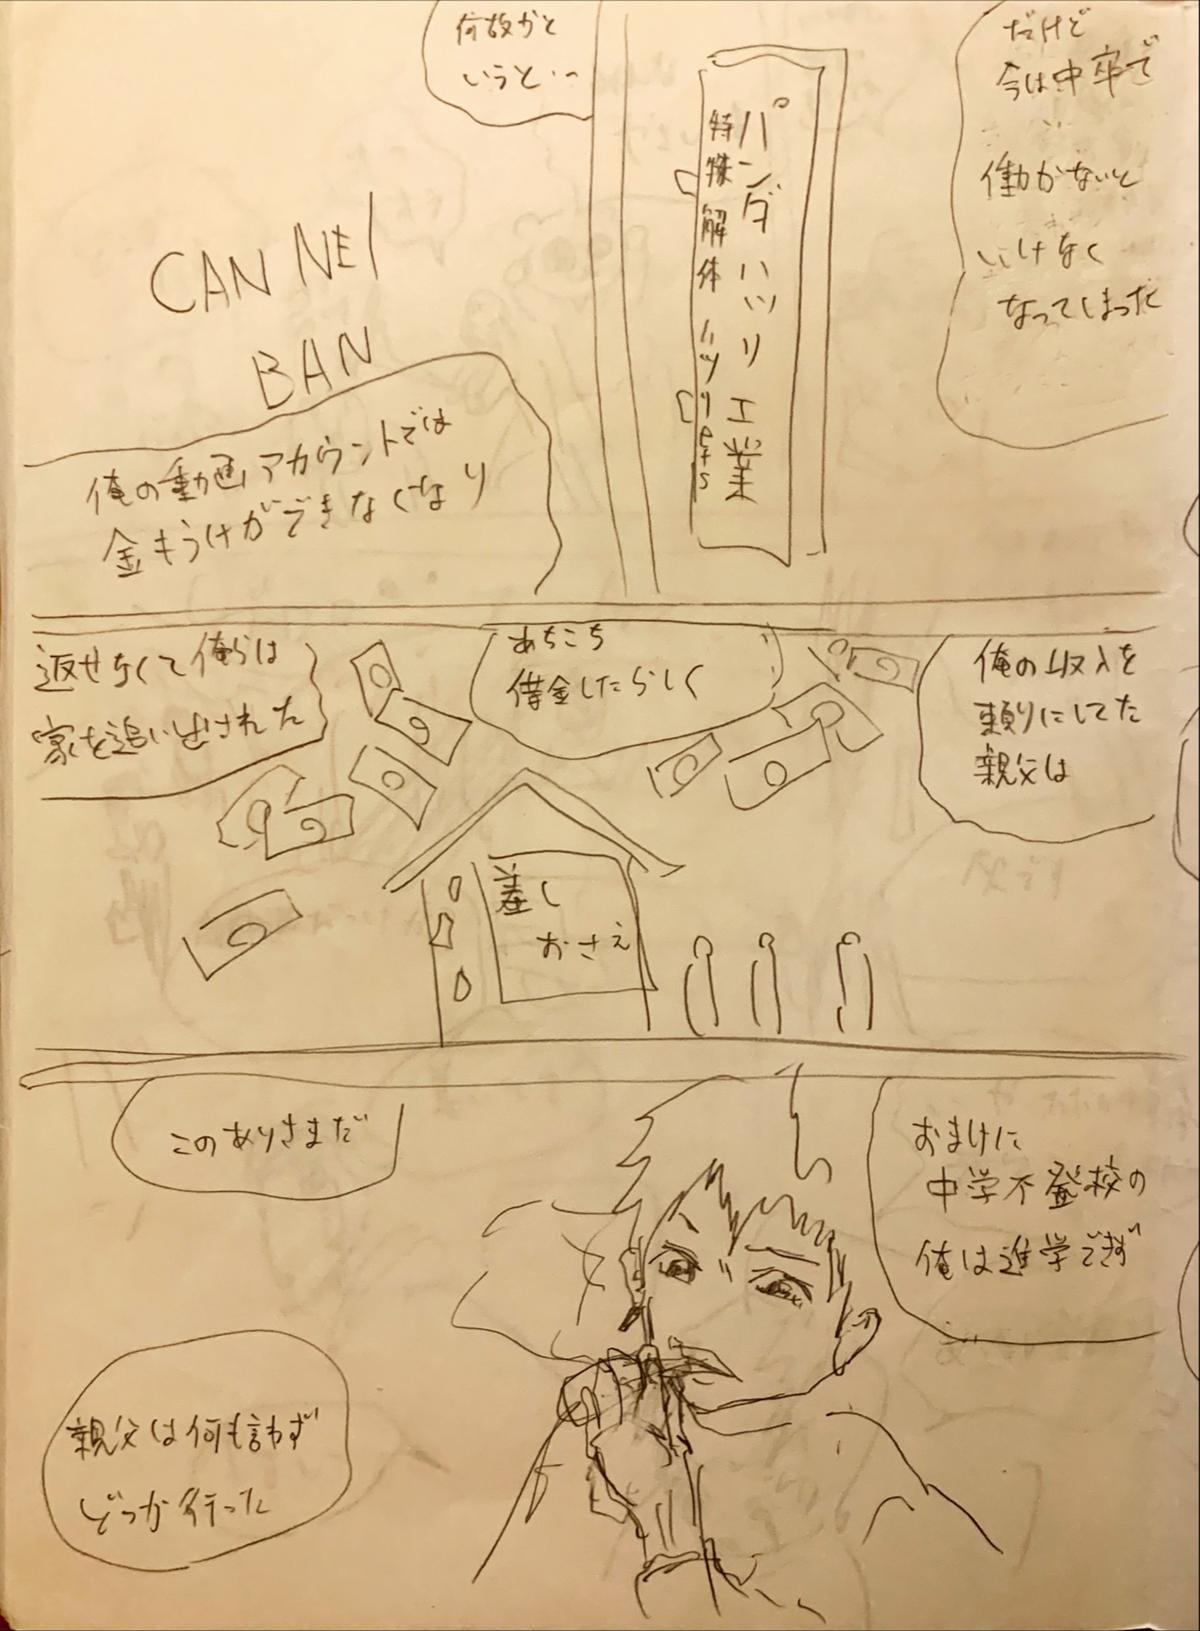 だけど
今は中卒で
働かないと
いけなく
なってしまった
パンダハツリ工業
特殊解体 ハツリ etc
何故かと
いうと…
CANNEl
BAN
俺の動画アカウントでは
金もうけができなくなり
俺の収入を
頼りにしてた
親父は
あちこち
借金したらしく
返せなくて俺らは
家を追い出された
差し
おさえ
おまけに
中学不登校の
俺は進学できず
このありさまだ
親父は何も言わず
どっか行った